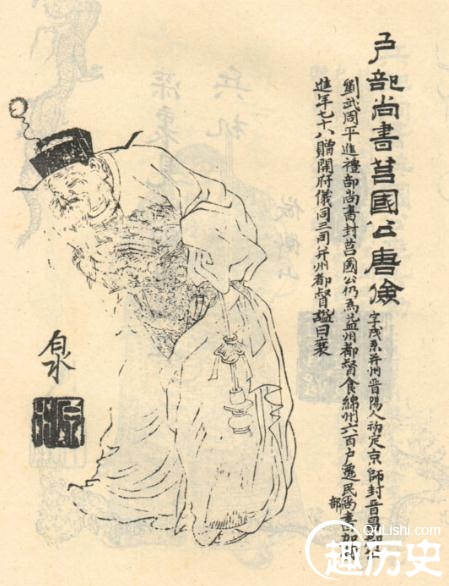 戶部尚書莒國公唐儉
字茂系并州晉陽人初定京師封晉昌郡
劉武周平進禮部尚書封莒國公仍為益州都督食綿州六百戶遷民尚書加特
部
進年七十八贈開府儀同三司并州都督謚曰襄
QuLishi.com
趣历史